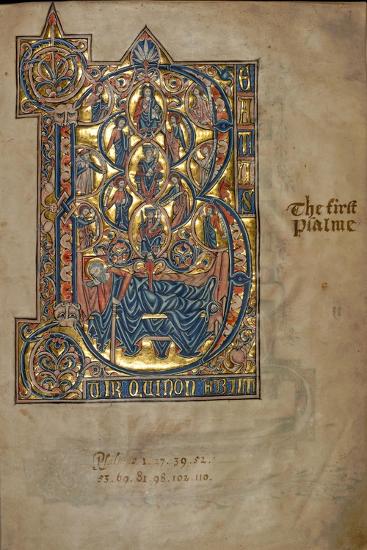 BEATUS
UIR QUINON ABIIT
The first
Psalme
1. 27. 39. 52.
53. 69. 81. 98. 102. 110.